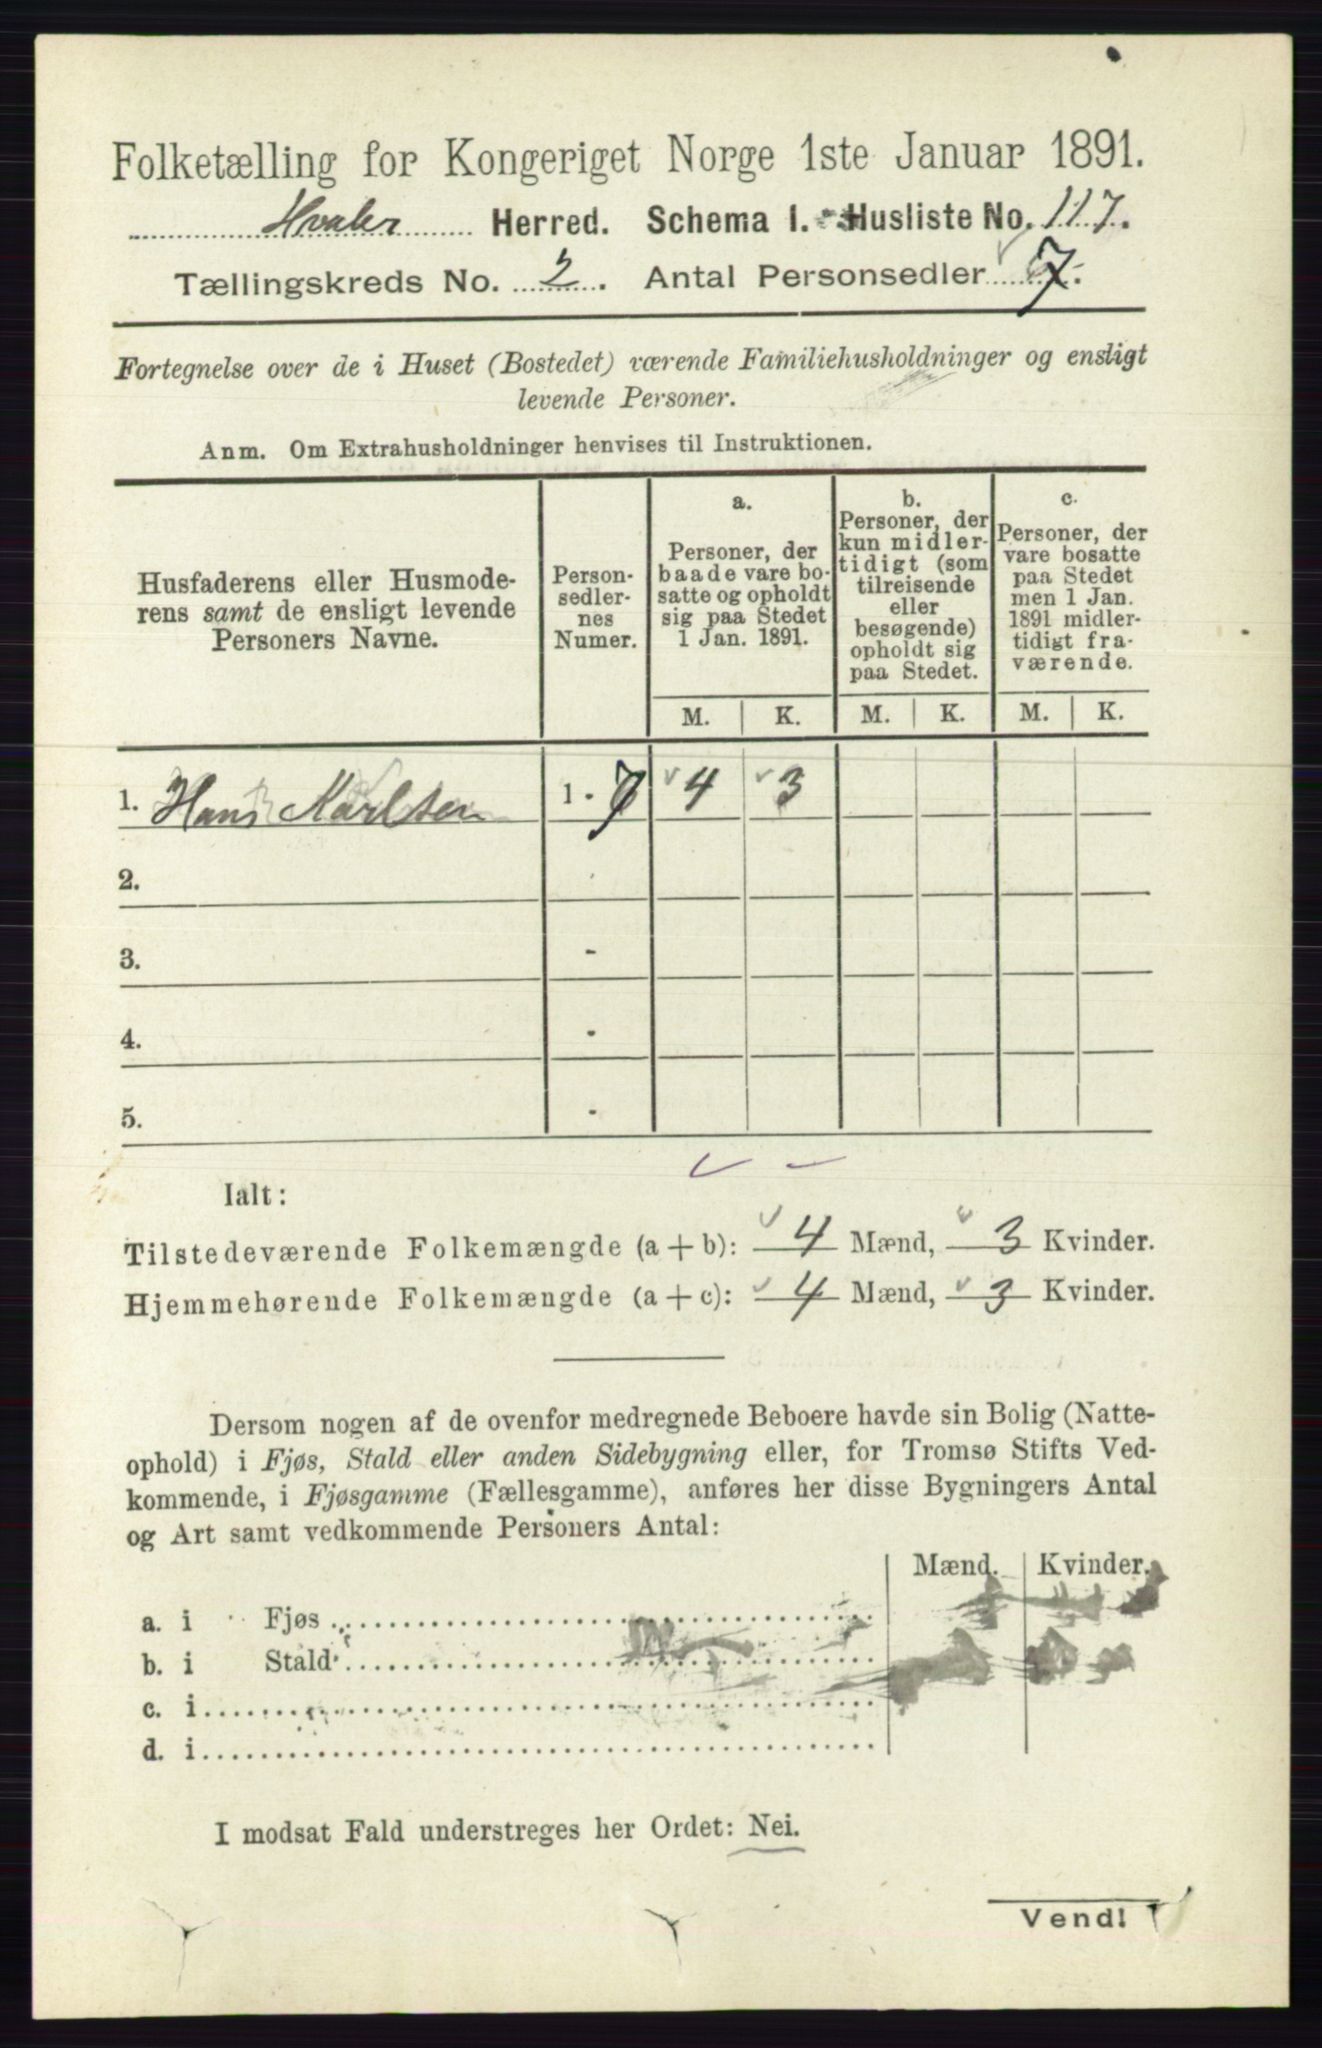 Folketælling for Kongeriget Norge 1ste Januar 1891.
Hvaler Herred. Schema I. Husliste No. 117.
Tællingskreds No. 2. Antal Personsedler 7.
Fortegnelse over de i Huset (Bostedet) værende Familiehusholdninger og ensligt
levende Personer.
Anm. Om Extrahusholdninger henvises til Instruktionen.
Husfaderens eller Husmode-
rens samt de ensligt levende
Personers Navne.
Person-
sedler-
nes
Numer.
a.
Personer, der
baade vare bo-
satte og opholdt
sig paa Stedet
1 Jan. 1891.
b.
Personer, der
kun midler-
tidigt (som
tilreisende
eller
besøgende)
opholdt sig
paa Stedet.
c.
Personer, der
vare bosatte
paa Stedet
men 1 Jan.
1891 midler-
tidigt fra-
værende.
M. K. M. K. M. K.
1. Hans Karlsen 1 - 7 4 3
2.
3. -
4. -
5. -
Ialt:
Tilstedeværende Folkemængde (a + b): 4 Mænd, 3 Kvinder.
Hjemmehørende Folkemængde (a + c): 4 Mænd, 3 Kvinder.
Dersom nogen af de ovenfor medregnede Beboere havde sin Bolig (Natte-
ophold) i Fjøs, Stald eller anden Sidebygning eller, for Tromsø Stifts Ved-
kommende, i Fjøsgamme (Fællesgamme), anføres her disse Bygningers Antal
og Art samt vedkommende Personers Antal:
Mænd. Kvinder.
a. i Fjøs
b. i Stald
c. i
d. i
I modsat Fald understreges her Ordet: Nei.
Vend!